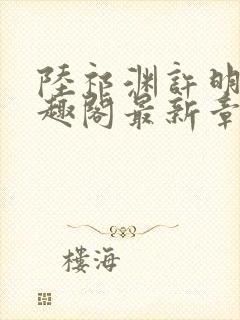 陸祁渊許明
趣閣最新章
樓海